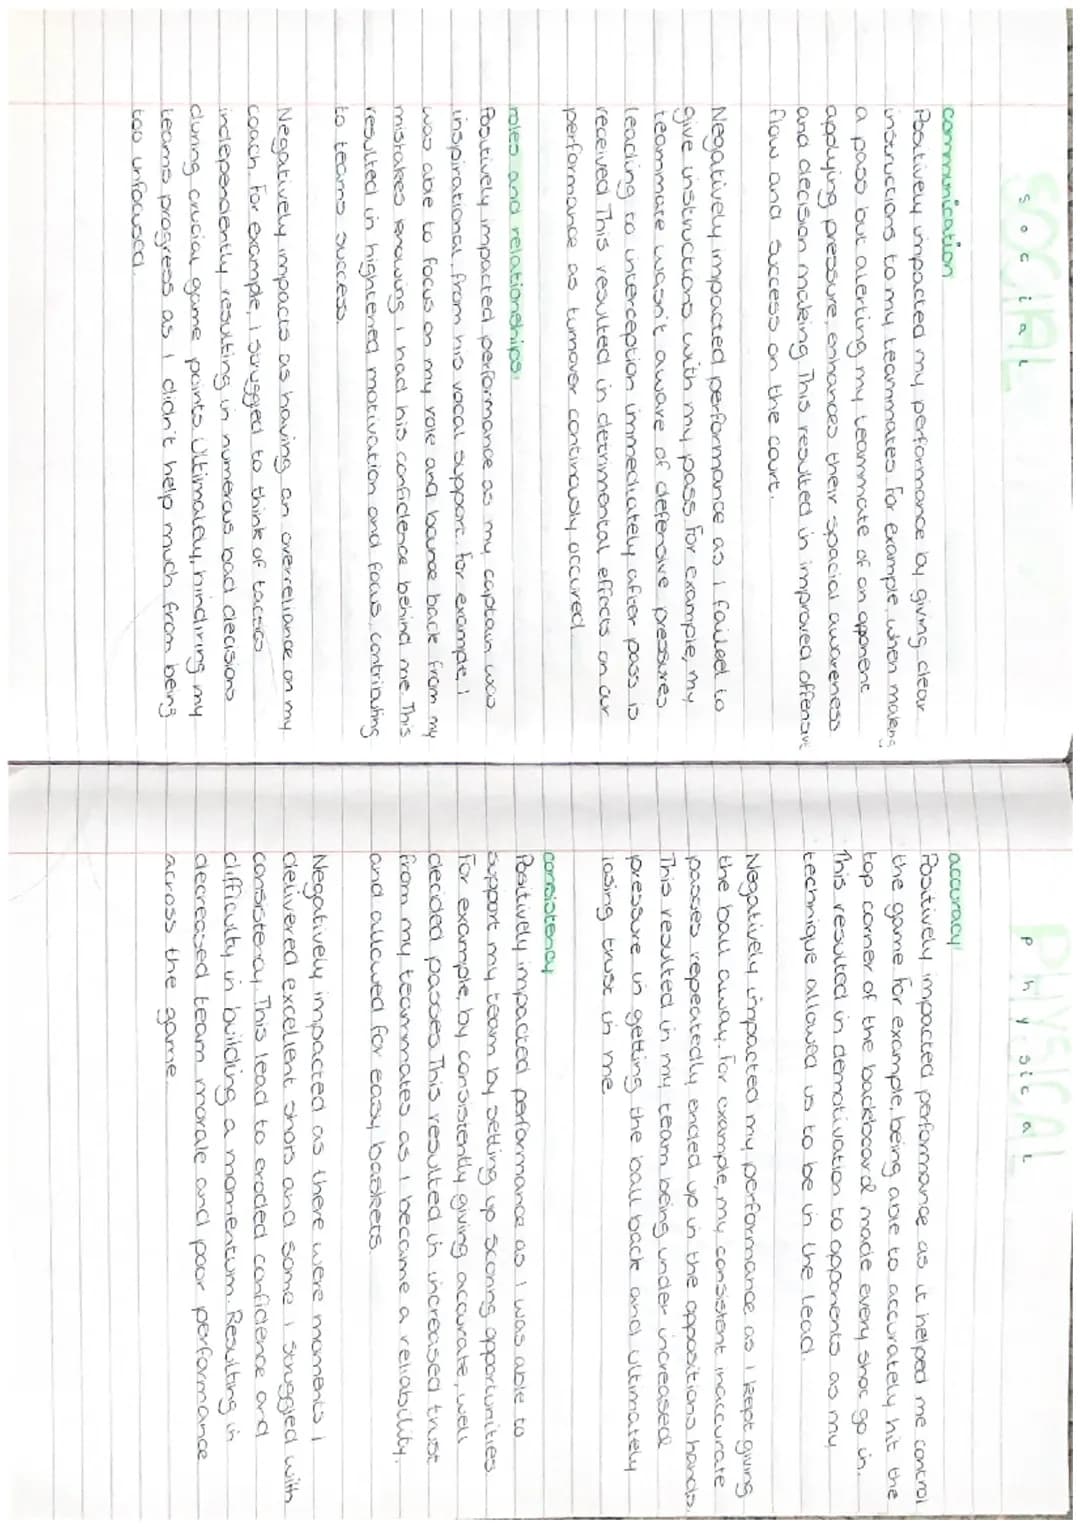 SOCIAL
social
communication
Positively impacted my performance by giving clear
instructions to my teammates. For example, when making
a pass but alerting my teammate of an opponent
applying pressure, enhances their spacial awareness
and decision making. This resulted in improved offensive
flow and success on the court.
Negatively impacted performance as I failed to
give instructions with my pass. For example, my
teammate wasn't aware of defensive pressures
leading to interception immediately after pass is
received. This resulted in detrimental effects on our
performance as turnover continously occured.
roles and relationships:
Positively impacted performance as my captain was
inspirational from his vocal support. For example, I
was able to focus on my role and bounce back from my
mistakes knowing I had his confidence behind me. This
resulted in hightened motivation and focus, contributing
to teams success.
Negatively impacts as having an overreliance on my
coach. For example, I struggled to think of tactics
independently resulting in numerous bad decisions
during crucial game points. Ultimately, hindring my
teams progress as I didn't help much from being
too unfocused.
PHYSICAL
physical
accuracy:
Positively impacted performance as it helped me control
the game. For example, being able to accurately hit the
top corner of the backboard made every shot go in.
This resulted in demotivation to opponents as my
technique allowed us to be in the lead.
Negatively impacted my performance as I kept giving
the ball away. For example, my consistent inaccurate
passes repeatedly ended up in the oppositions hands.
This resulted in my team being under increased
pressure in getting the ball back and ultimately
losing trust in me.
consistency
Positively impacted performance as I was able to
support my team by setting up scoring opportunities.
For example, by consistently giving accurate, well
decided passes. This resulted in increased trust
from my teammates as I became a reliability,
and allowed for easy baskets.
Negatively impacted as there were moments I
delivered excellent shots and some I struggled with
consistency. This lead to eroded confidence and
difficulty in building a momentum. Resulting in
decreased team morale and poor performance
across the game.